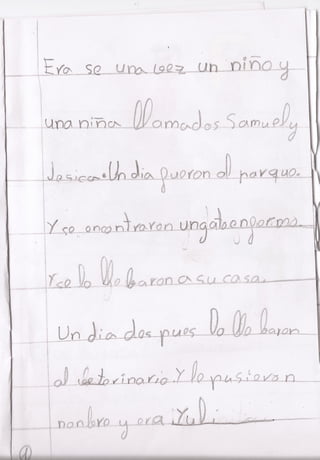 Era se una vez un niño y
una niña llamados Samuel y
Jesica. Un dia fueron al parque.
Y se encontraron un gato enfermo
Y se lo llebaron a su casa.
Un dia des pues lo lle baron
al veterinario. Y le pusieron
nonbre y era Yuli
1